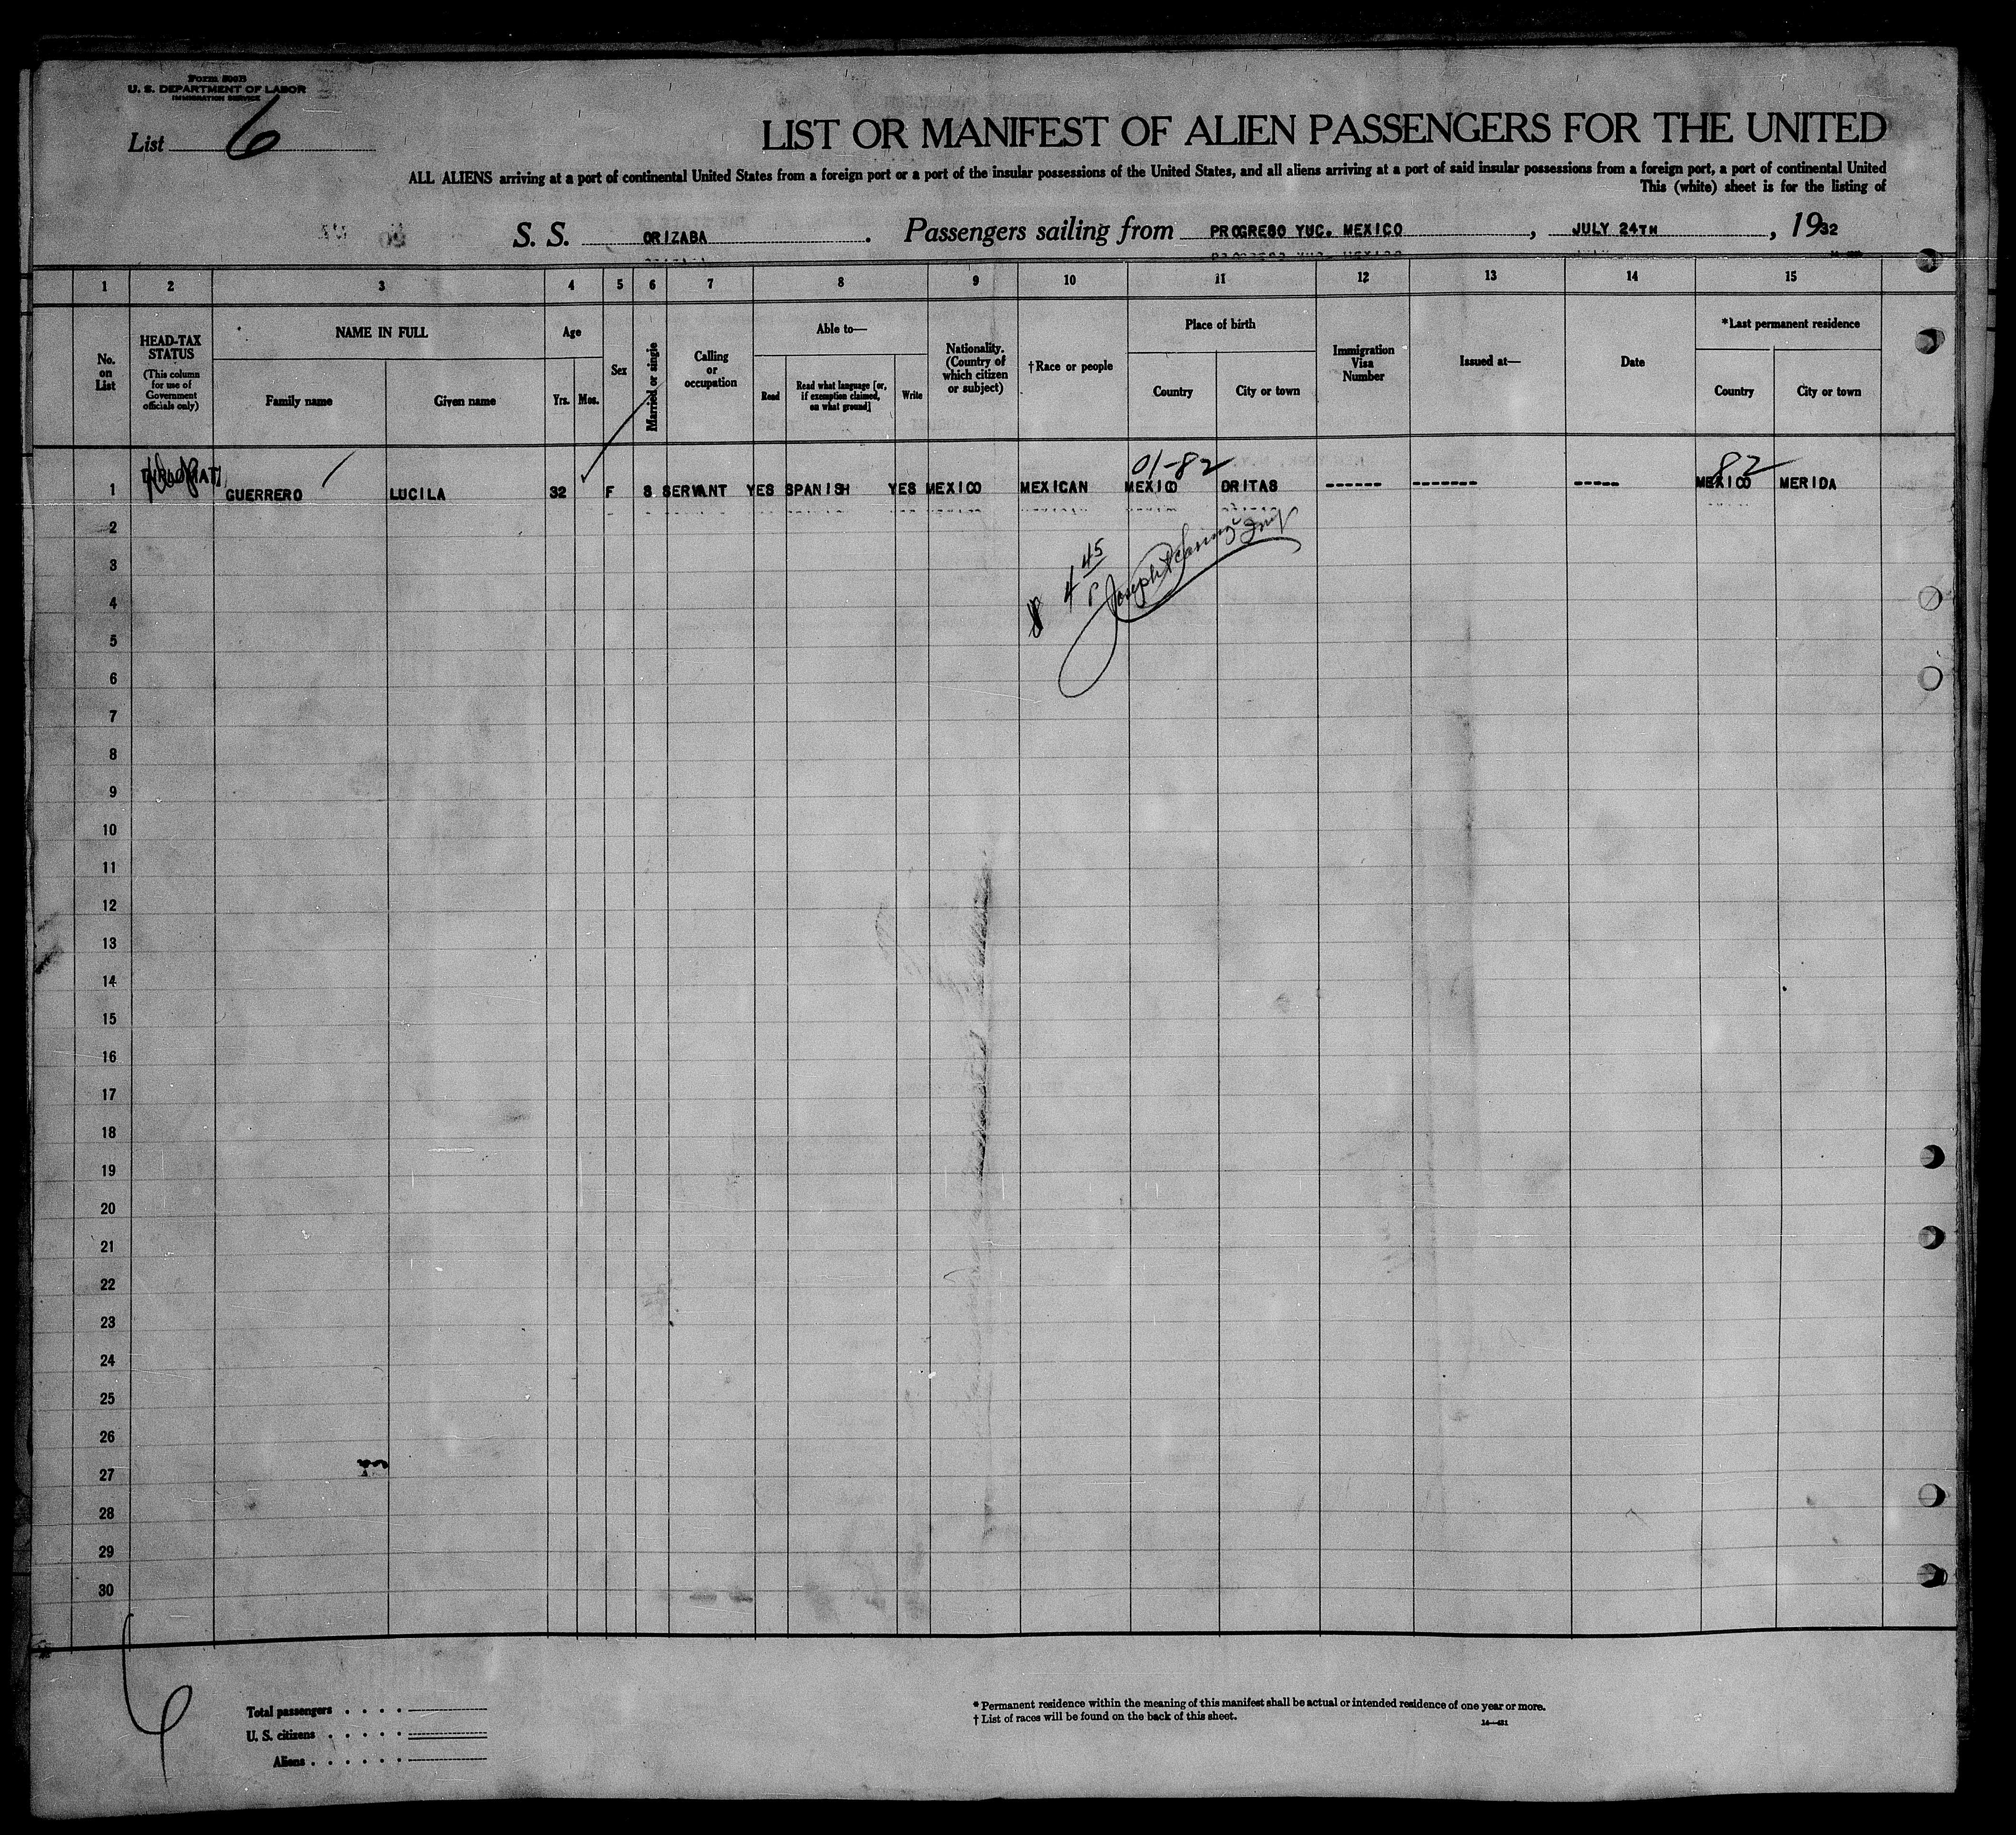 Form 500B
U. S. DEPARTMENT OF LABOR
IMMIGRATION SERVICE
List 6
LIST OR MANIFEST OF ALIEN PASSENGERS FOR THE UNITED
ALL ALIENS arriving at a port of continental United States from a foreign port or a port of the insular possessions of the United States, and all aliens arriving at a port of said insular possessions from a foreign port, a port of continental United
This (white) sheet is for the listing of
S. S. ORIZABA. Passengers sailing from PROGRESO YUC. MEXICO, JULY 24TH, 1932
1 2 3 4 5 6 7 8 9 10 11 12 13 14 15
No. on List
HEAD-TAX STATUS
(This column for use of Government officials only)
NAME IN FULL
Family name
Given name
Age
Yrs.
Mos.
Sex
Married or single
Calling or occupation
Able to—
Read
Read what language [or, if exemption claimed, on what ground]
Write
Nationality. (Country of which citizen or subject)
†Race or people
Place of birth
Country
City or town
Immigration Visa Number
Issued at—
Date
*Last permanent residence
Country
City or town
01-82 82
1 GUERRERO LUCILA 32 F S SERVANT YES SPANISH YES MEXICO MEXICAN MEXICO ORITAS ------ ------- ----- MEXICO MERIDA
2
3
4
5
6
7
8
9
10
11
12
13
14
15
16
17
18
19
20
21
22
23
24
25
26
27
28
29
30
6
Total passengers . . . .
U. S. citizens . . . . .
Aliens . . . . . .
* Permanent residence within the meaning of this manifest shall be actual or intended residence of one year or more.
† List of races will be found on the back of this sheet.